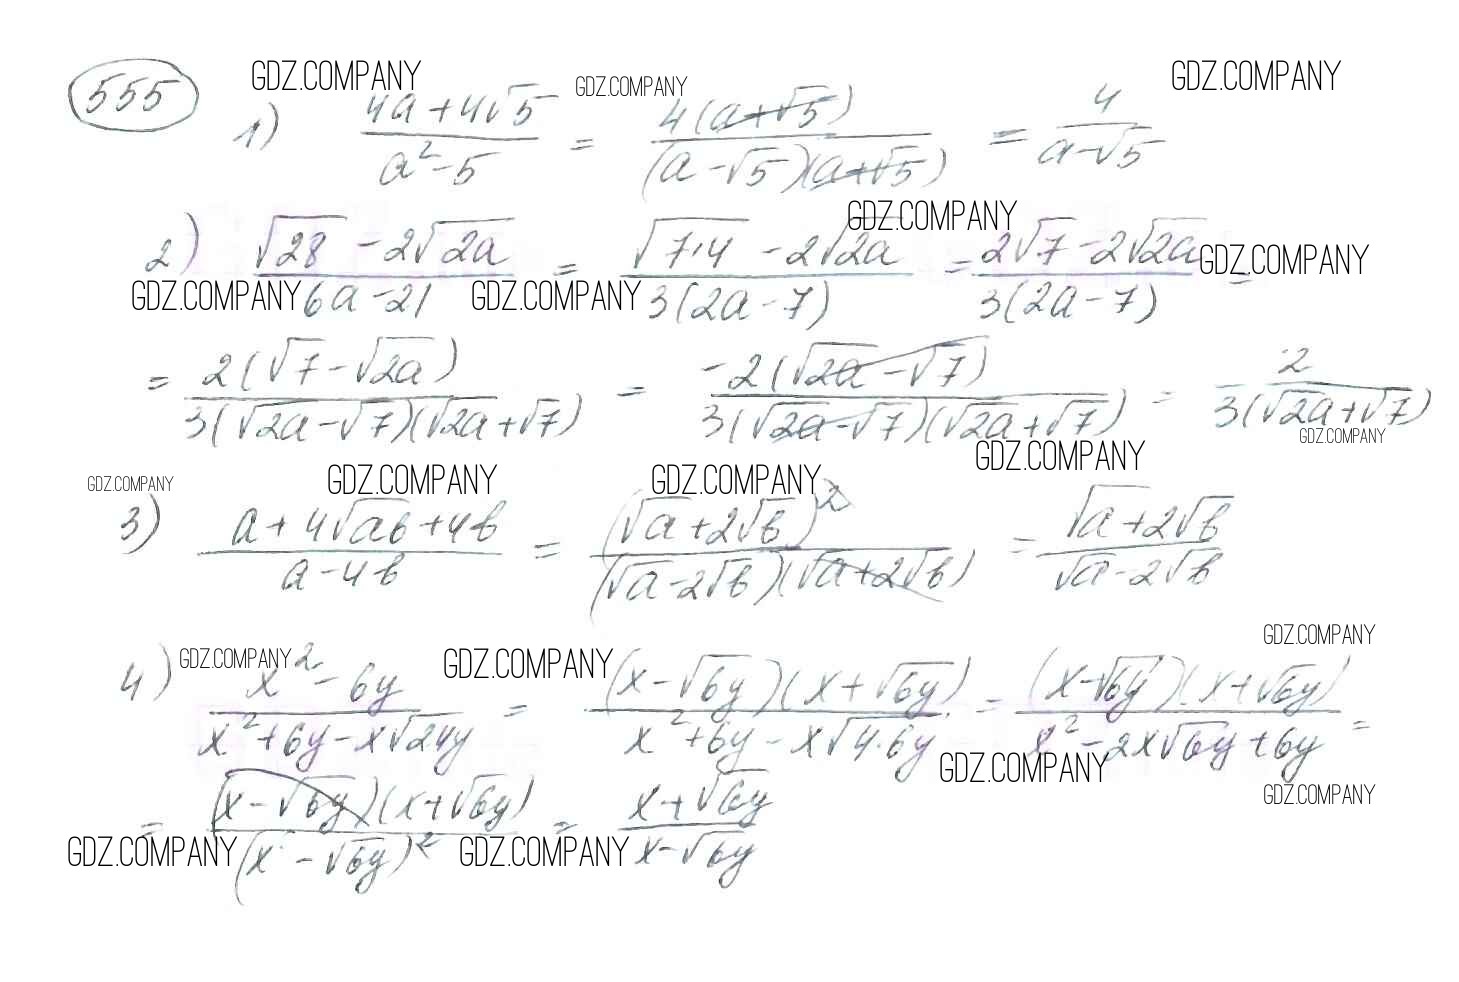 555 GDZ.COMPANY GDZ.COMPANY GDZ.COMPANY
1) (4a+4√5)/(a²-5) = (4(a+√5))/((a-√5)(a+√5)) = 4/(a-√5)
GDZ.COMPANY
2) (√28 - 2√2a)/(6a-21) = (√7·4 - 2√2a)/(3(2a-7)) = (2√7-2√2a)/(3(2a-7)) =
GDZ.COMPANY
GDZ.COMPANY GDZ.COMPANY
= (2(√7-√2a))/(3(√2a-√7)(√2a+√7)) = (-2(√2a-√7))/(3(√2a-√7)(√2a+√7)) = - 2/(3(√2a+√7))
GDZ.COMPANY GDZ.COMPANY
GDZ.COMPANY GDZ.COMPANY GDZ.COMPANY
3) (a+4√ab+4b)/(a-4b) = (√a+2√b)²/((√a-2√b)(√a+2√b)) = (√a+2√b)/(√a-2√b)
GDZ.COMPANY
GDZ.COMPANY GDZ.COMPANY
4) (x²-6y)/(x²+6y-x√24y) = ((x-√6y)(x+√6y))/(x²+6y-x√4·6y) = ((x-√6y)(x+√6y))/(x²-2x√6y+6y) =
GDZ.COMPANY GDZ.COMPANY
= ((x-√6y)(x+√6y))/(x-√6y)² = (x+√6y)/(x-√6y)
GDZ.COMPANY GDZ.COMPANY